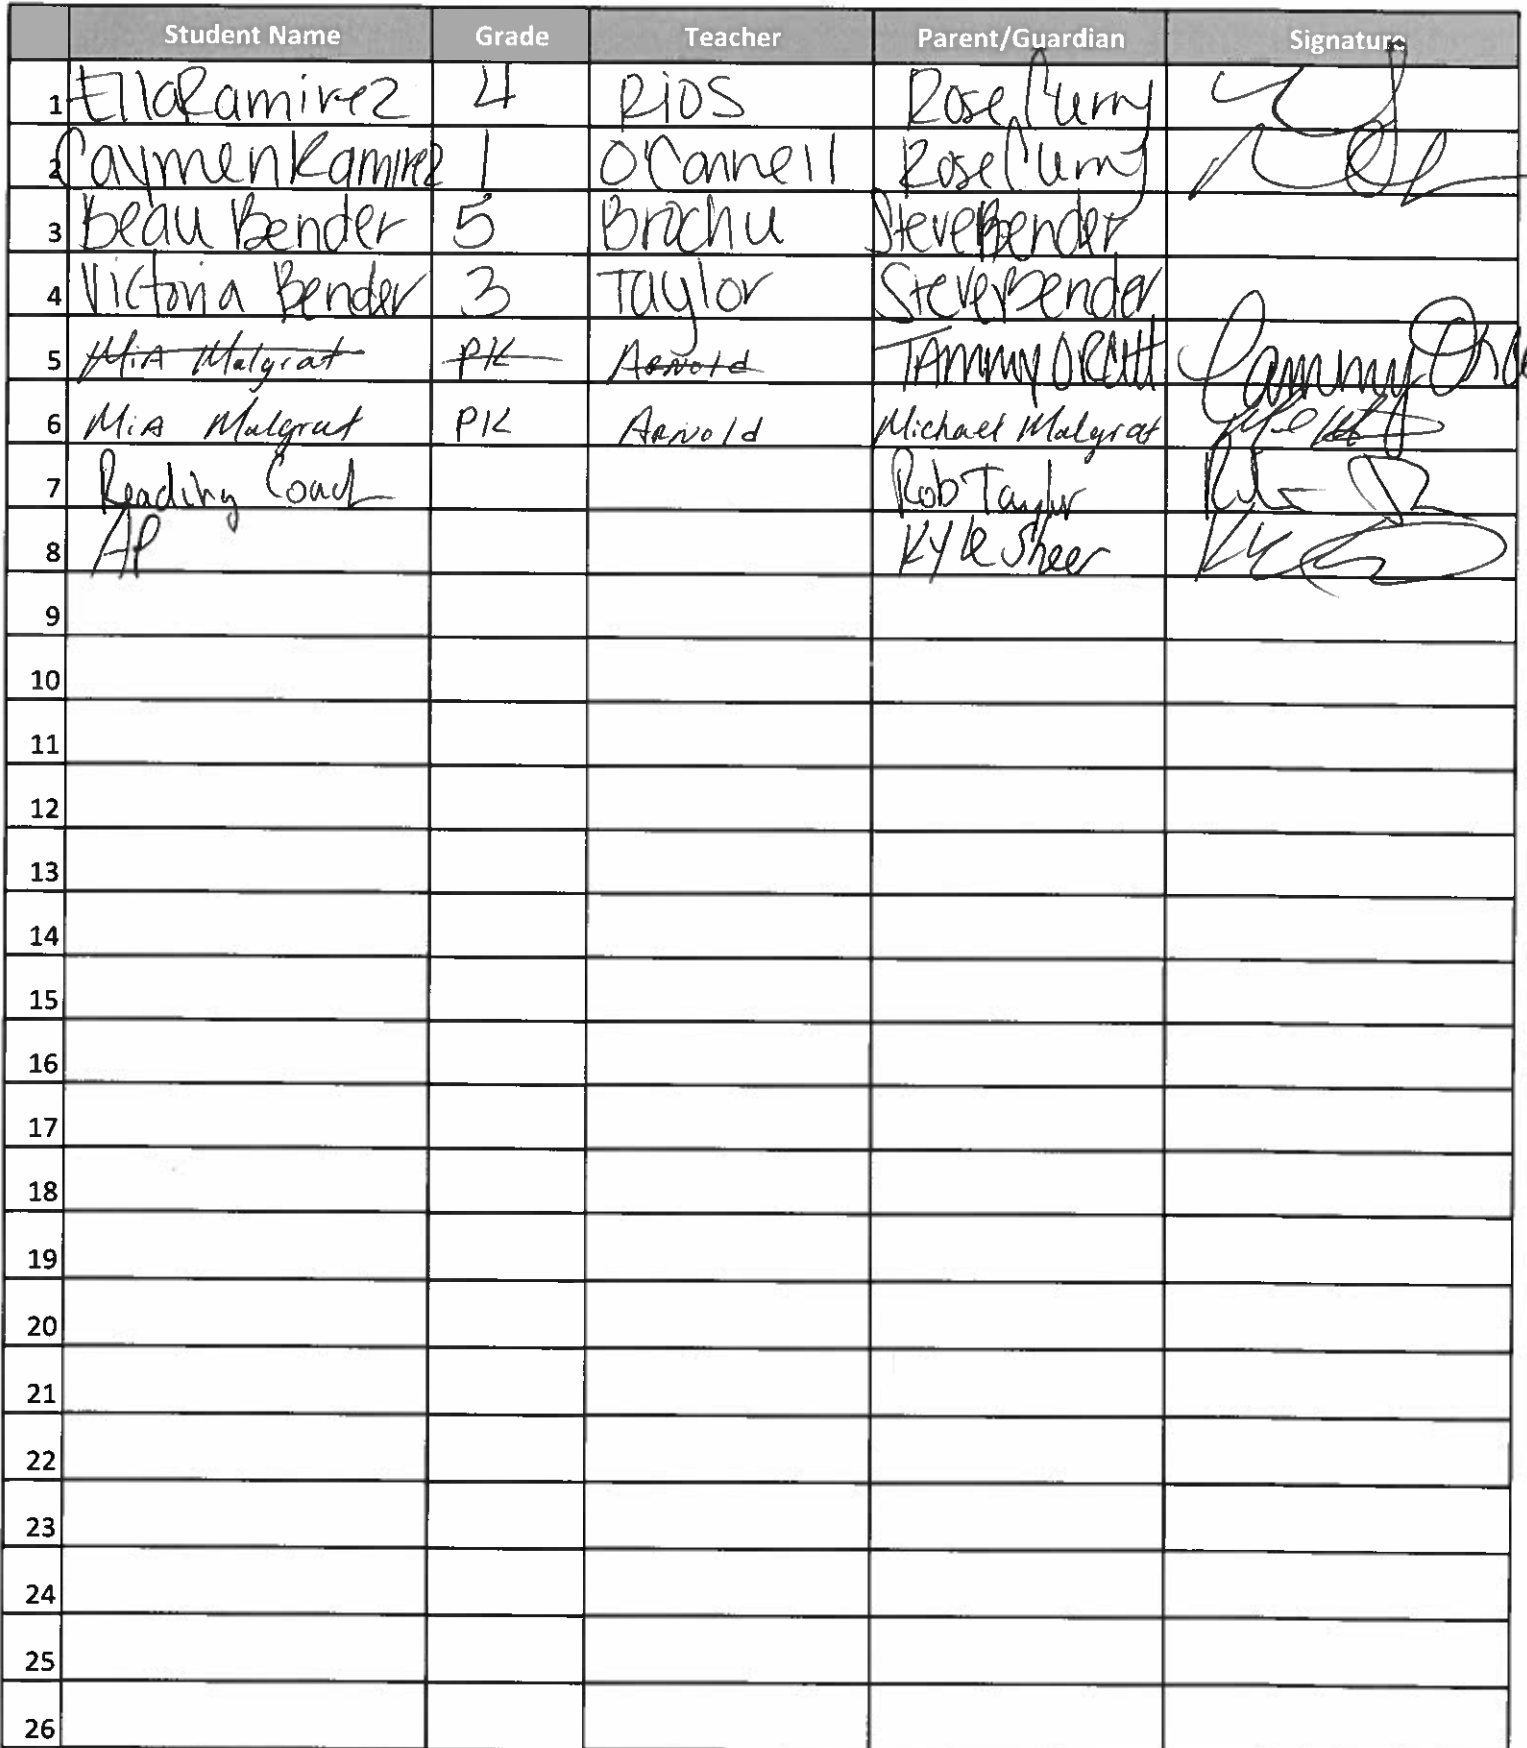 Student Name Grade Teacher Parent/Guardian Signature
1 Ella Ramirez 4 Rios Rose Curry
2 Caymen Ramirez 1 O'Connell Rose Curry
3 Beau Bender 5 Brochu Steve Bender
4 Victoria Bender 3 Taylor Steve Bender
5 Mia Malgrat PK Arnold Tammy Orcutt Tammy
6 Mia Malgrat PK Arnold Michael Malgrat
7 Reading Coach Rob Taylor
8 AP Kyle Sheer
9
10
11
12
13
14
15
16
17
18
19
20
21
22
23
24
25
26